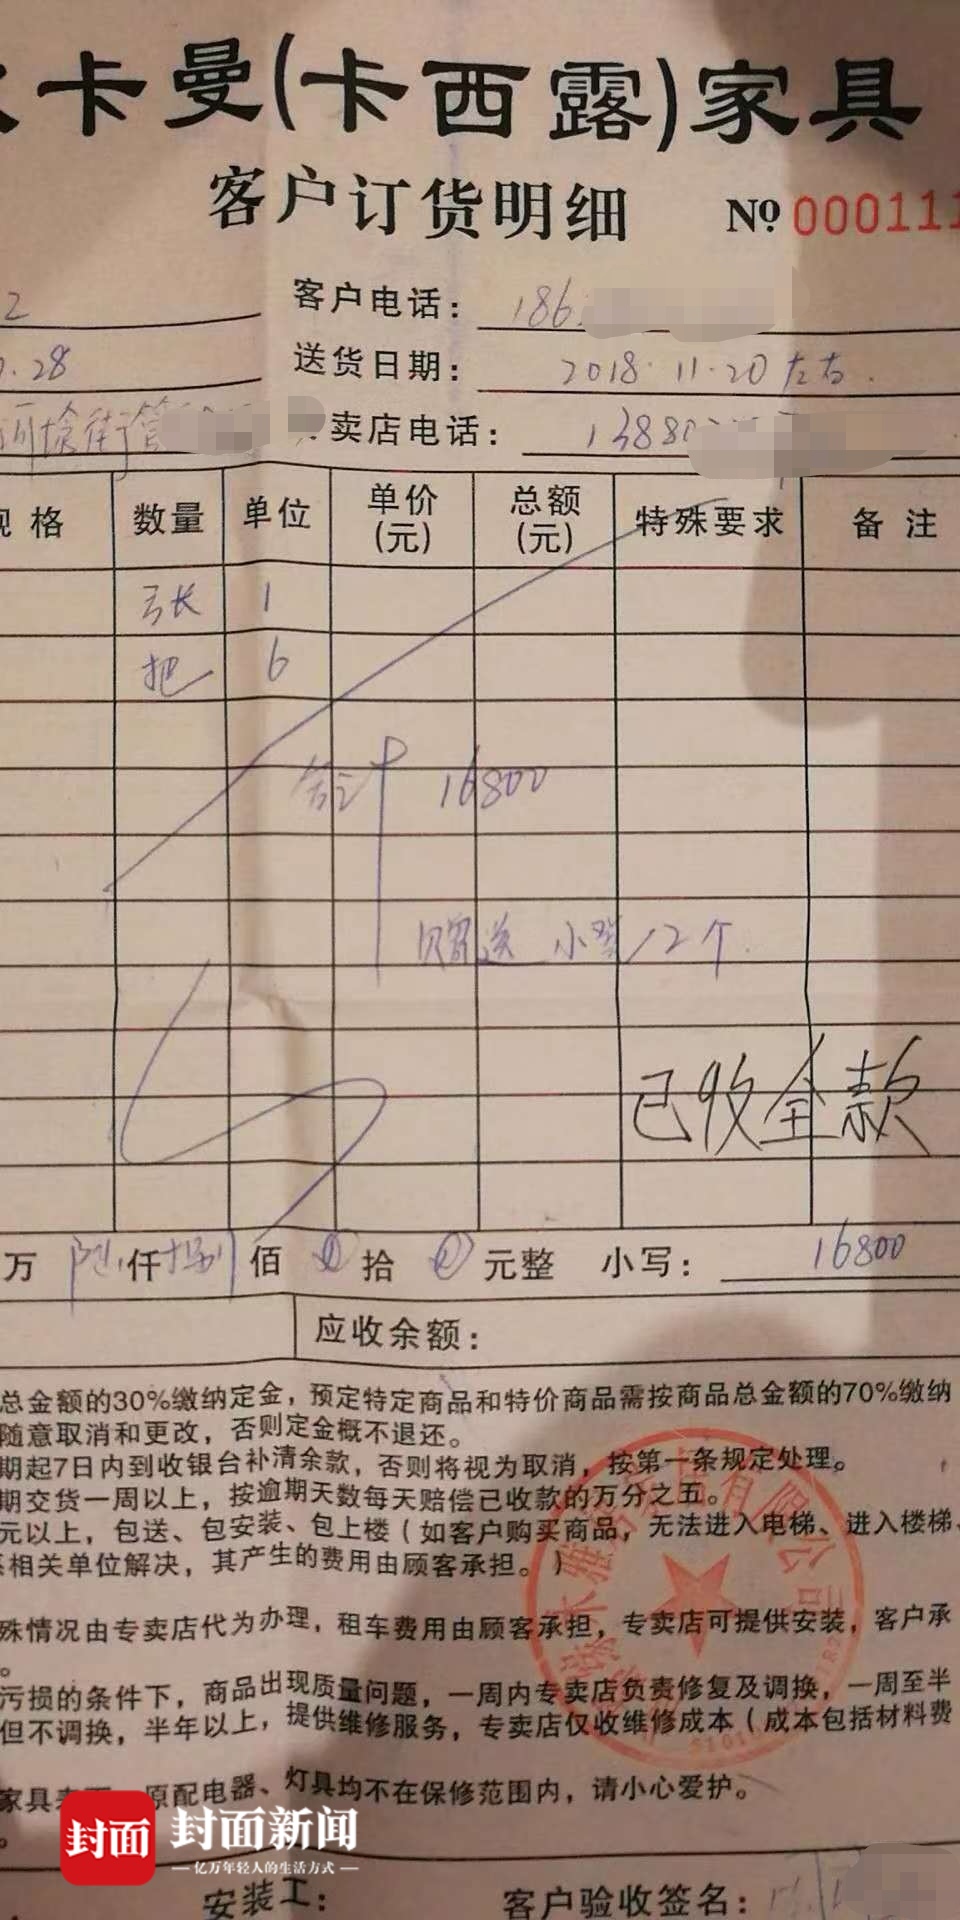 卡曼(卡西露)家具
客户订货明细 № 000111
2 客户电话: 186
.28 送货日期: 2018.11.20左右.
街 卖店电话: 1388
格 数量 单位 单价(元) 总额(元) 特殊要求 备注
张 1
把 6
合计 16800
赠送 小凳 2个.
已收全款
万 陆仟捌佰 拾 元整 小写: 16800
应收余额:
总金额的30%缴纳定金，预定特定商品和特价商品需按商品总金额的70%缴纳
随意取消和更改，否则定金概不退还。
期起7日内到收银台补清余款，否则将视为取消，按第一条规定处理。
期交货一周以上，按逾期天数每天赔偿已收款的万分之五。
元以上，包送、包安装、包上楼（如客户购买商品，无法进入电梯、进入楼梯、
相关单位解决，其产生的费用由顾客承担。）
殊情况由专卖店代为办理，租车费用由顾客承担，专卖店可提供安装，客户承
。
污损的条件下，商品出现质量问题，一周内专卖店负责修复及调换，一周至半
但不调换，半年以上，提供维修服务，专卖店仅收维修成本（成本包括材料费
家具表面、原配电器、灯具均不在保修范围内，请小心爱护。
。
有限公司
封面 封面新闻
亿万年轻人的生活方式
安装工: 客户验收签名: